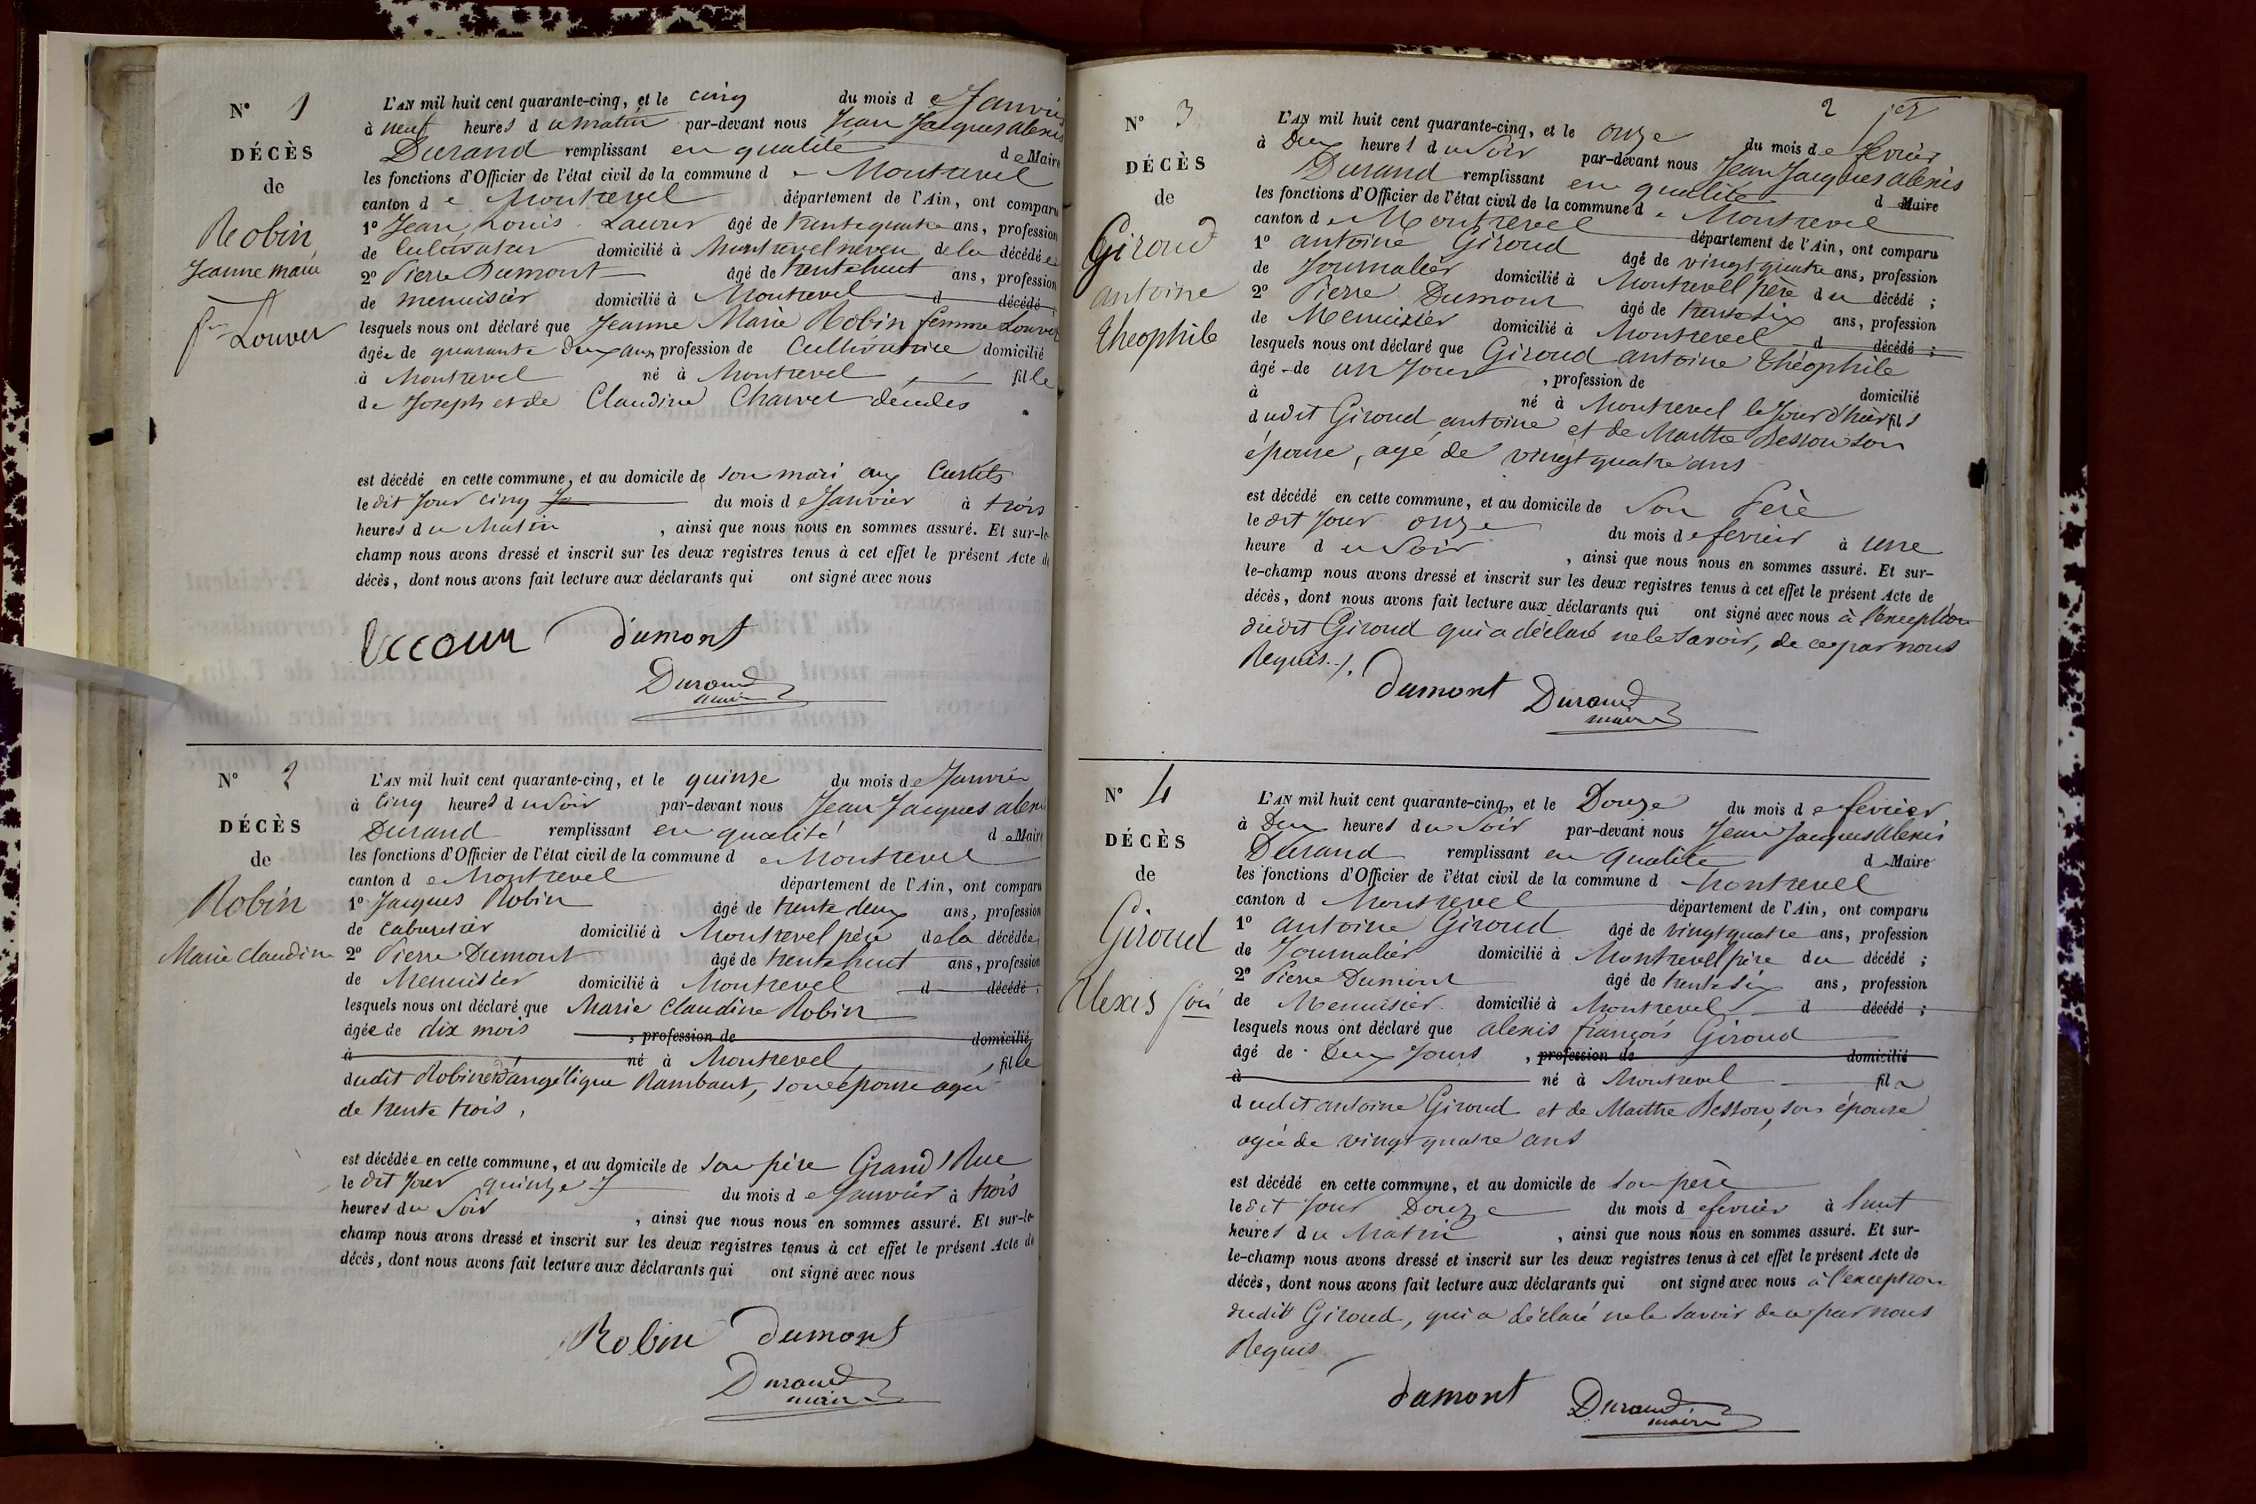 N° 1
DÉCÈS
de
Robin
Jeanne marie
fe Louver
L'AN mil huit cent quarante-cinq, et le cinq du mois de Janvier
à neuf heures du matin par-devant nous Jean Jacques alexis
Durand remplissant en qualité de Maire
les fonctions d'Officier de l'état civil de la commune de Montrevel
canton de Montrevel département de l'Ain, ont comparu
1° Jean Louis âgé de trente quatre ans, profession
de Cultivateur domicilié à Montrevel neveu de la décédée
2° Pierre Dumont âgé de trente huit ans, profession
de menuisier domicilié à Montrevel d décédé ;
lesquels nous ont déclaré que Jeanne Marie Robin femme Louver
âgée de quarante deux ans profession de Cultivatrice domicilié
à Montrevel né à Montrevel fille
de Joseph et de Claudine Chanel décédés
est décédé en cette commune, et au domicile de son mari aux Curtets
le dit Jour cinq du mois de Janvier à trois
heures du Matin , ainsi que nous nous en sommes assuré. Et sur-le-
champ nous avons dressé et inscrit sur les deux registres tenus à cet effet le présent Acte de
décès, dont nous avons fait lecture aux déclarants qui ont signé avec nous
dumont
Durand
maire
N° 2
DÉCÈS
de
Robin
Marie Claudine
L'AN mil huit cent quarante-cinq, et le quinze du mois de Janvier
à Cinq heures du Soir par-devant nous Jean Jacques alexis
Durand remplissant en qualité de Maire
les fonctions d'Officier de l'état civil de la commune de Montrevel
canton de Montrevel département de l'Ain, ont comparu
1° Jacques Robin âgé de trente deux ans, profession
de Cabaretier domicilié à Montrevel père de la décédée
2° Pierre Dumont âgé de trente huit ans, profession
de Menuisier domicilié à Montrevel d décédé ;
lesquels nous ont déclaré que Marie Claudine Robin
âgée de dix mois , profession de domicilié
à né à Montrevel fille
dudit Robin et d'angélique Rambaut, son épouse agée
de trente trois,
est décédée en cette commune, et au domicile de son père Grand Rue
le dit Jour quinze du mois de Janvier à trois
heures du Soir , ainsi que nous nous en sommes assuré. Et sur-le-
champ nous avons dressé et inscrit sur les deux registres tenus à cet effet le présent Acte de
décès, dont nous avons fait lecture aux déclarants qui ont signé avec nous
Robin dumont
Durand
maire
2
N° 3
DÉCÈS
de
Giroud
antoine
théophile
L'AN mil huit cent quarante-cinq, et le onze du mois de fevrier
à Deux heures du Soir par-devant nous Jean Jacques alexis
Durand remplissant en qualité d Maire
les fonctions d'Officier de l'état civil de la commune de Montrevel
canton de Montrevel département de l'Ain, ont comparu
1° antoine Giroud âgé de vingt quatre ans, profession
de Journalier domicilié à Montrevel père du décédé ;
2° Pierre Dumont âgé de trente six ans, profession
de Menuisier domicilié à Montrevel d décédé ;
lesquels nous ont déclaré que Giroud antoine théophile
âgé de un Jour , profession de domicilié
à né à Montrevel le Jour d'hier fils
dudit Giroud antoine et de Marthe Besson son
épouse, agé de vingt quatre ans
est décédé en cette commune, et au domicile de Son Père
le dit Jour onze du mois de fevrier à une
heure du Soir , ainsi que nous nous en sommes assuré. Et sur-
le-champ nous avons dressé et inscrit sur les deux registres tenus à cet effet le présent Acte de
décès, dont nous avons fait lecture aux déclarants qui ont signé avec nous à l'exception
dudit Giroud qui a déclaré ne le savoir, de ce par nous
Requis.
dumont Durand
maire
N° 4
DÉCÈS
de
Giroud
Alexis foi
L'AN mil huit cent quarante-cinq, et le Douze du mois de fevrier
à Deux heures du Soir par-devant nous Jean Jacques Alexis
Durand remplissant en qualité de Maire
les fonctions d'Officier de l'état civil de la commune d Montrevel
canton d Montrevel département de l'Ain, ont comparu
1° antoine Giroud âgé de vingt quatre ans, profession
de Journalier domicilié à Montrevel père du décédé ;
2° Pierre Dumont âgé de trente six ans, profession
de Menuisier domicilié à Montrevel d décédé ;
lesquels nous ont déclaré que alexis françois Giroud
âgé de Deux Jours , profession de domicilié
à né à Montrevel fil
dudit antoine Giroud et de Marthe Besson, son épouse
agée de vingt quatre ans
est décédé en cette commune, et au domicile de son père
le dit Jour Douze du mois de fevrier à huit
heures du Matin , ainsi que nous nous en sommes assuré. Et sur-
le-champ nous avons dressé et inscrit sur les deux registres tenus à cet effet le présent Acte de
décès, dont nous avons fait lecture aux déclarants qui ont signé avec nous à l'exception
dudit Giroud, qui a déclaré ne le savoir de ce par nous
Requis
dumont Durand
maire